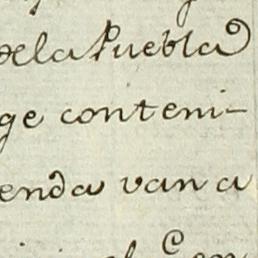 de la Puebla
ge conteni-
enda van a